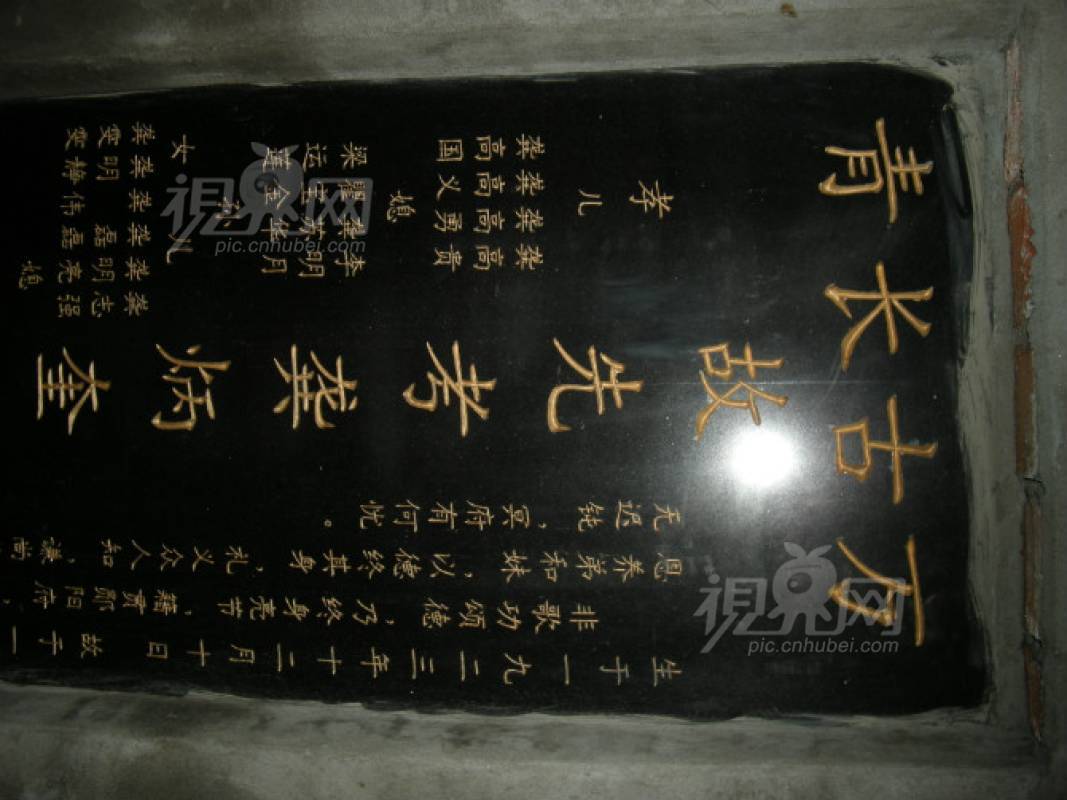 万古长青
生于一九二三年十二月十日 故于一
非歌功颂德,乃终身亮节,籍贯郧阳府,
恩养弟和妹,以德终其身,礼义众人知,谦尚
无迟钝,冥府有何忧。
故先考龚炳奎
孝儿
龚高贵
龚高勇
龚高义
龚高国
媳
李明月
梁运莲
女儿媳
龚志强
龚明亮
龚磊
龚伟
龚明静
龚雯雯
視界网
pic.cnhubei.com
視界网
pic.cnhubei.com